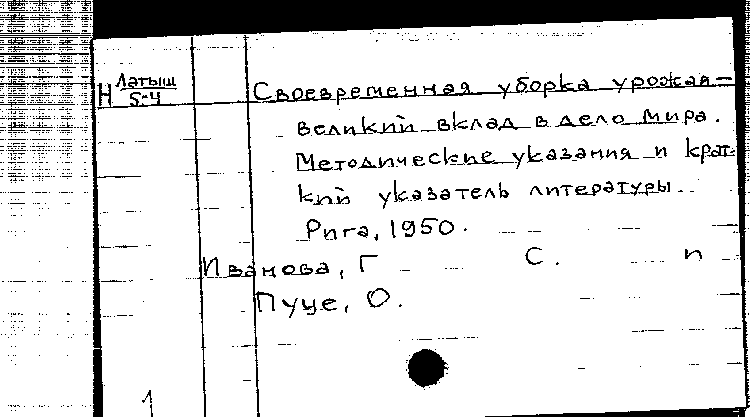 Н Латыш
5-4
Своевременная уборка урожая-
великий вклад в дело мира.
Методические указания и крат-
кий указатель литературы.
Рига, 1950.
Иванова, Г С. и
Пуце, О.
1